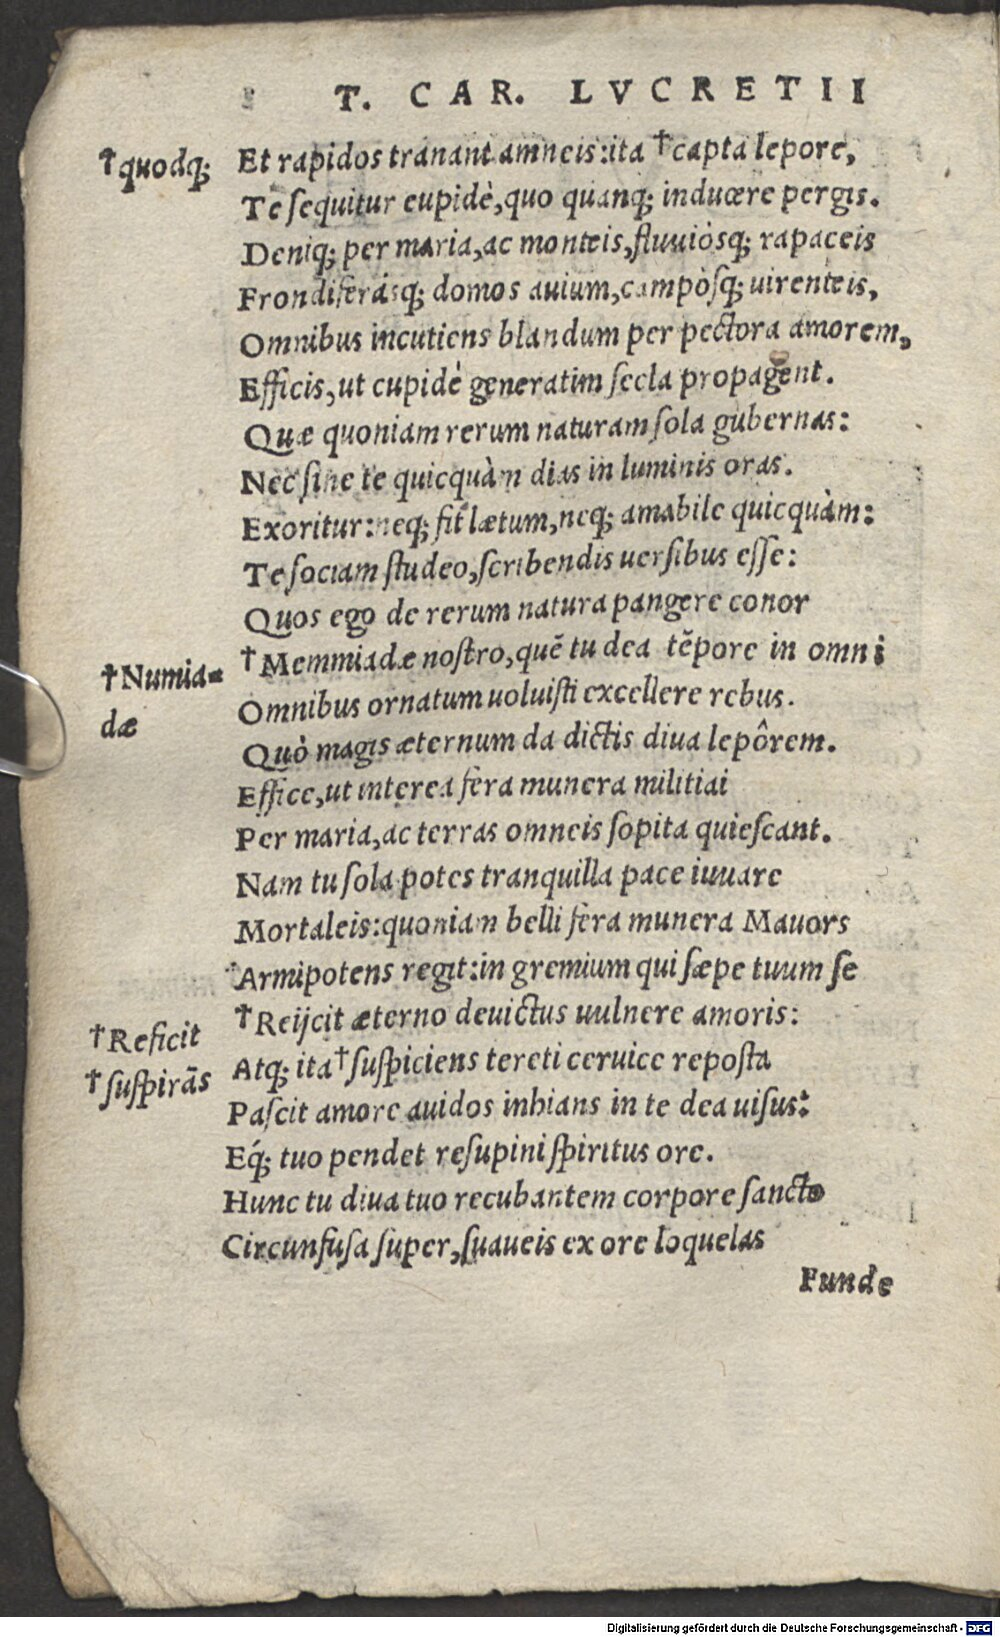 T. CAR. LVCRETII
†quodq; Et rapidos tranant amneis: ita †capta lepore,
Te sequitur cupidè, quo quanq; inducere pergis.
Deniq; per maria, ac monteis, fluuiòsq; rapaceis
Frondiferásq; domos auium, campòsq; uirenteis,
Omnibus incutiens blandum per pectora amorem,
Efficis, ut cupidè generatim secla propagent.
Quæ quoniam rerum naturam sola gubernas:
Nec sine te quicquàm dias in luminis oras.
Exoritur: neq; fit lætum, neq; amabile quicquàm:
Te sociam studeo, scribendis uersibus esse:
Quos ego de rerum natura pangere conor
†Numia= †Memmiadæ nostro, quẽ tu dea tẽpore in omni
dæ Omnibus ornatum uoluisti excellere rebus.
Quò magis æternum da dictis diua lepôrem.
Effice, ut interea fèra munera militiai
Per maria, ac terras omneis sopita quiescant.
Nam tu sola potes tranquilla pace iuuare
Mortaleis: quoniam belli fèra munera Mauors
Armipotens regit: in gremium qui sæpe tuum se
†Reficit †Reijcit æterno deuictus uulnere amoris:
†suspirãs Atq; ita †suspiciens tereti ceruice reposta
Pascit amore auidos inhians in te dea uisus:
Eq́; tuo pendet resupini spiritus ore.
Hunc tu diua tuo recubantem corpore sancto
Circunfusa super, suaueis ex ore loquelas
Funde
Digitalisierung gefördert durch die Deutsche Forschungsgemeinschaft - DFG